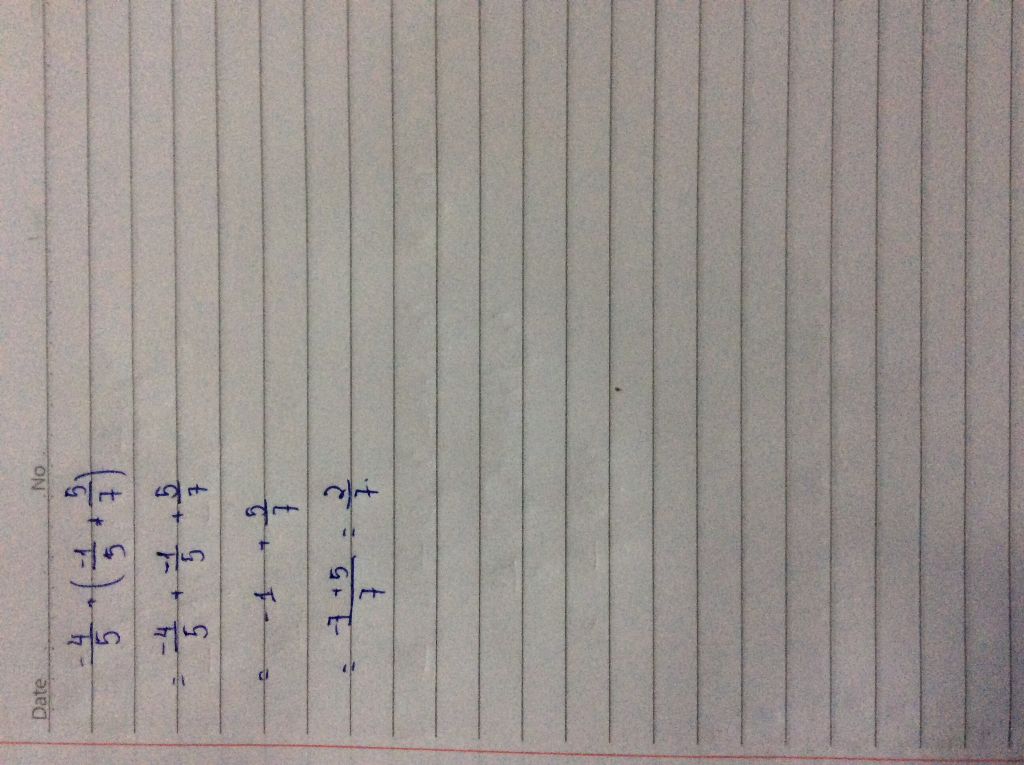 Date No
-4/5 + (-1/5 + 5/7)
= -4/5 + -1/5 + 5/7
= -1 + 5/7
= -7+5/7 = 2/7